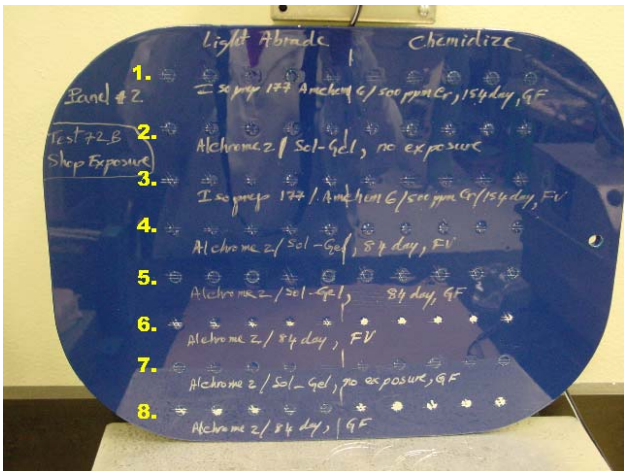 Light Abrade Chemidize
1.
Panel #2
Isoprep 177 Amchem 6/500 ppm Cr, 154 day, GF
Test 72B
Shop Exposure
2.
Alchrome 2 / Sol-Gel, no exposure
3.
Isoprep 177/Amchem 6/500 ppm Cr/154 day, FV
4.
Alchrome 2/Sol-Gel, 84 day, FV
5.
Alchrome 2/Sol-Gel, 84 day, GF
6.
Alchrome 2/84 day, FV
7.
Alchrome 2/Sol-Gel, no exposure, GF
8.
Alchrome 2/84 day, GF